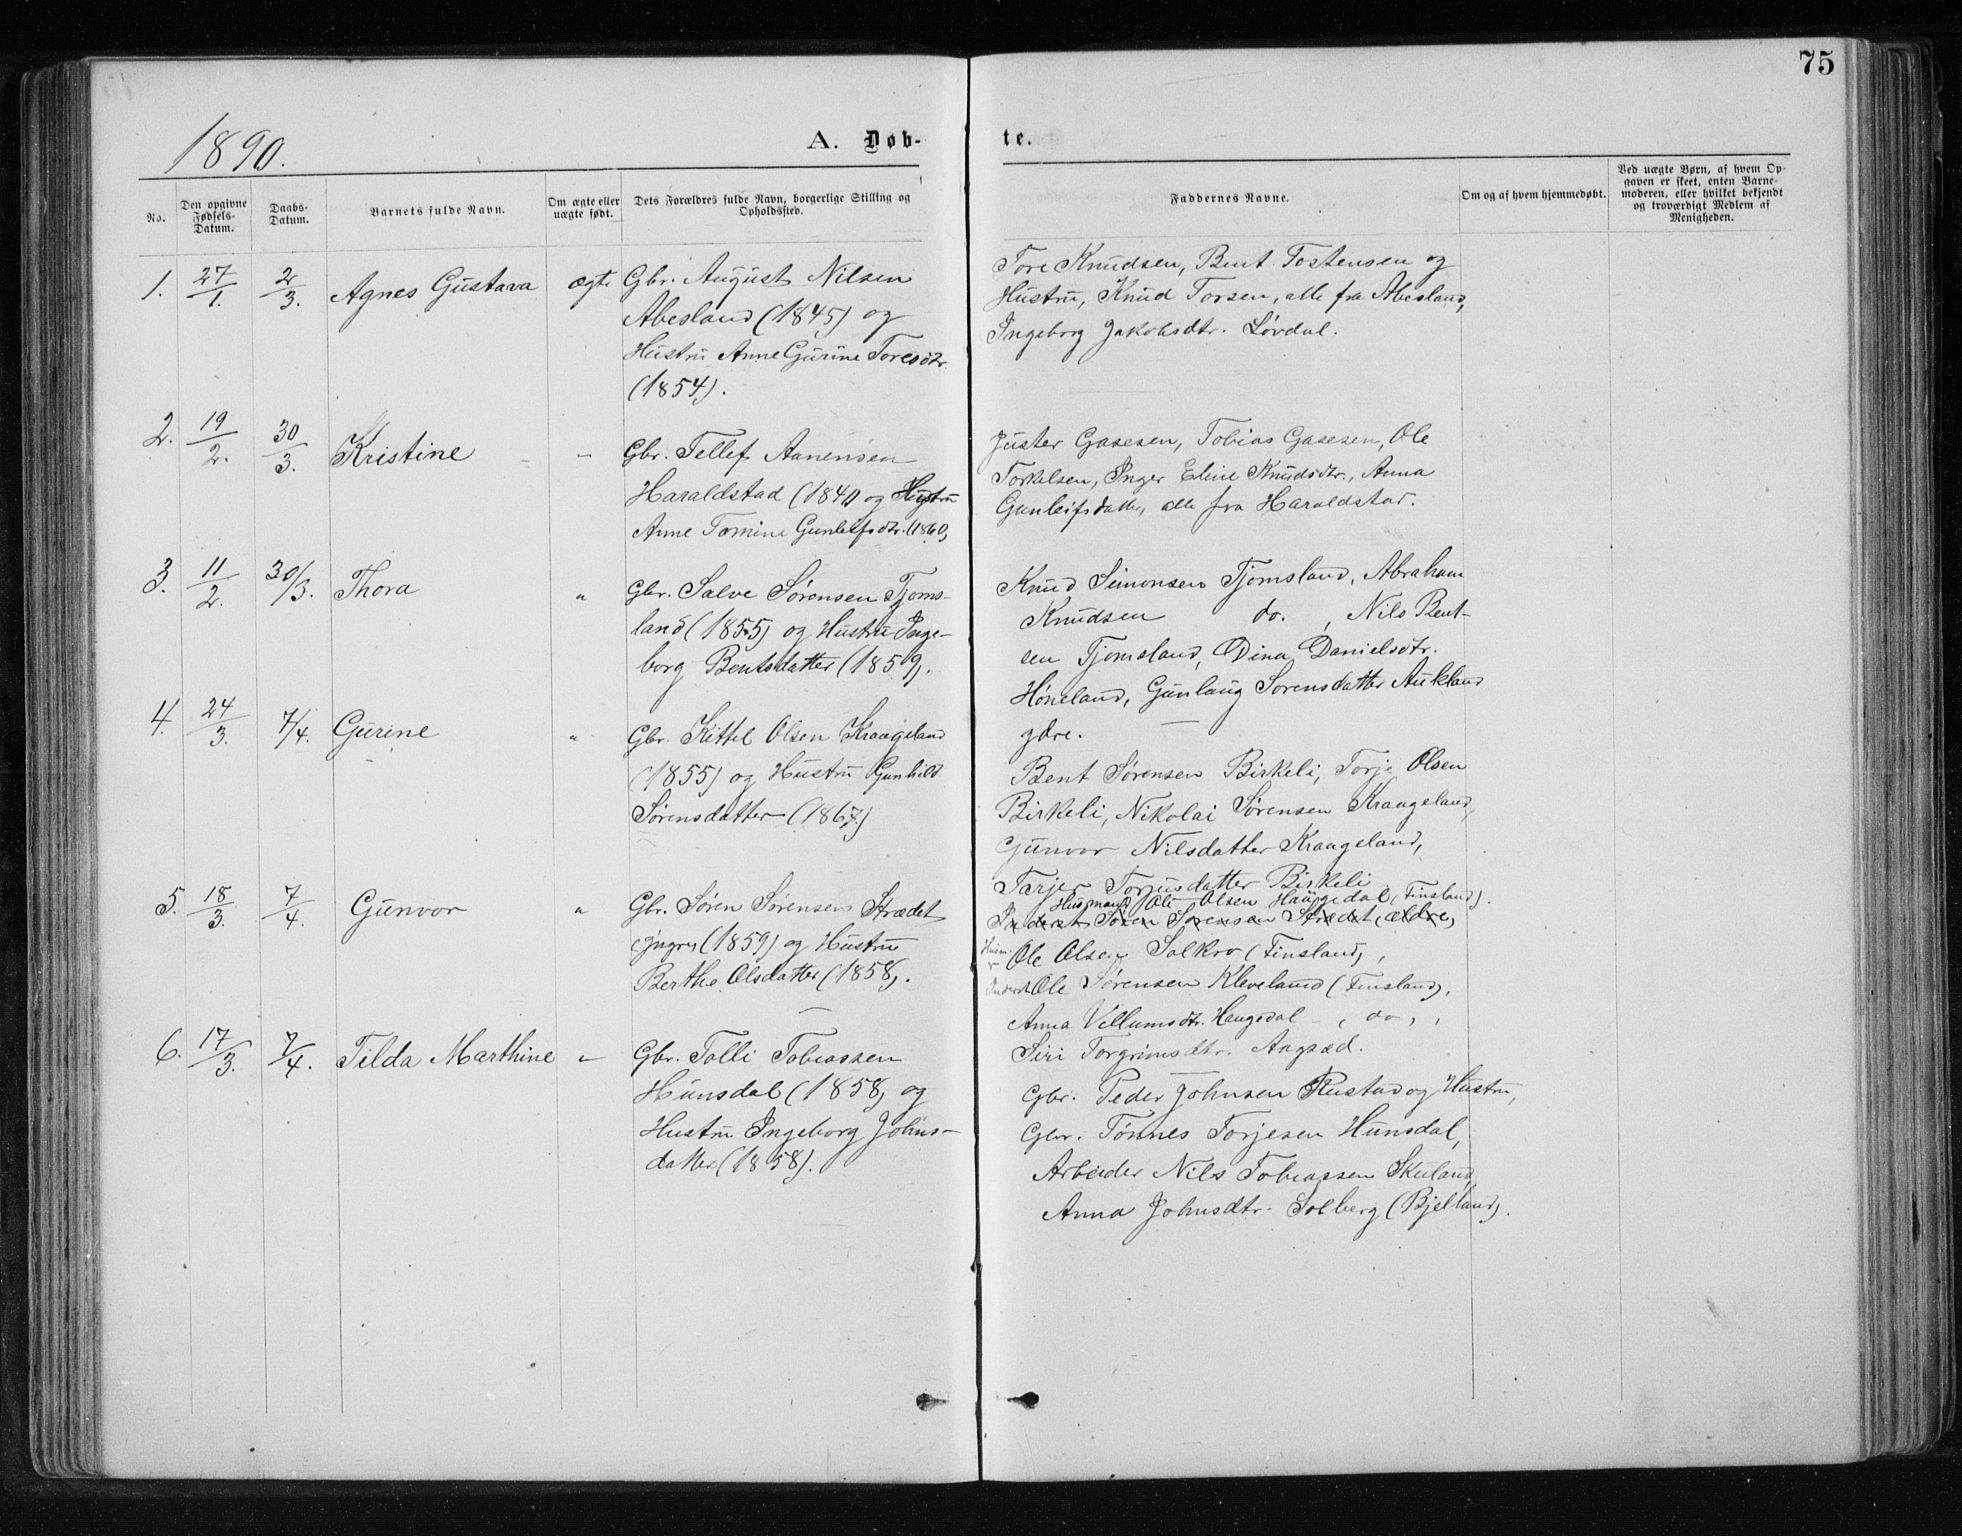 75
1890.
A. Døb-
te.
No.
Den opgivne Fødsels-Datum.
Daabs-Datum.
Barnets fulde Navn.
Om ægte eller uægte født.
Dets Forældres fulde Navn, borgerlige Stilling og Opholdssted.
Faddernes Navne.
Om og af hvem hjemmedøbt.
Ved uægte Børn, af hvem Opgaven er skeet, enten Barnemoderen, eller hvilket bekjendt og troværdigt Medlem af Menigheden.
1. 27/1. 2/3. Agnes Gustava ægte Gbr. August Nilsen
Abesland (1845) og
Hustru Anne Gurine Toresdtr.
(1854).
Tore Knudsen, Bent Tostensen og
Hustru, Knud Torsen, alle fra Abesland,
Ingeborg Jakobsdtr. Løvdal.
2. 19/2. 30/3. Kristine – Gbr. Tellef Aanensen
Haraldstad (1840) og Hustru
Anne Tomine Gunleifsdtr. (1860)
Juster Gasesen, Tobias Gasesen, Ole
Torkelsen, Inger Eline Knudsdtr., Anna
Gunleifsdatter, alle fra Haraldstad.
3. 11/2. 30/3. Thora " Gbr. Salve Sørensen Tjoms-
land (1855) og Hustru Inge-
borg Bentsdatter (1859).
Knud Simonsen Tjomsland, Abraham
Knudsen do. , Nils Bent-
sen Tjomsland, Dina Danielsdtr.
Høneland, Gunlaug Sorensdatter Aukland
ydre.
4. 24/3. 7/4. Gurine " Gbr. Kittel Olsen Kraageland
(1855) og Hustru Gunhild
Sørensdatter (1867)
Bent Sørensen Birkeli, Torje Olsen
Birkeli, Nikolai Sørensen Kraageland,
Gunvor Nilsdatter Kraageland,
Tarjer Torjusdatter Birkeli
5. 18/3. 7/4. Gunvor " Gbr. Søren Sørensen Strædet
yngre (1859) og Hustru
Berthe Olsdatter (1858).
Husmand Ole Olsen Haugedal (Finsland).
Inderst Søren Sørensen Strædet, ældre,
Ole Olsen Solkro (Finsland),
Inderst Ole Sørensen Kleveland (Finsland),
Anna Villumsdtr. Haugedal – , do ,
Siri Torgrimsdtr. Aagsæd.
6. 17/3. 7/4. Tilda Marthine – Gbr. Tolli Tobiassen
Hunsdal (1858) og
Hustru Ingeborg Johns-
datter (1858).
Gbr. Peder Johnsen Rustad og Hustru,
Gbr. Tønnes Torjesen Hunsdal,
Arbeider Nils Tobiassen Skuland,
Anna Johnsdtr. Solberg (Bjelland).